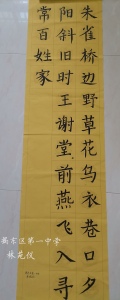 朱雀桥边野草花乌衣巷口夕
阳斜旧时王谢堂前燕飞入寻
常百姓家
蕉东区第一中学
林花仪